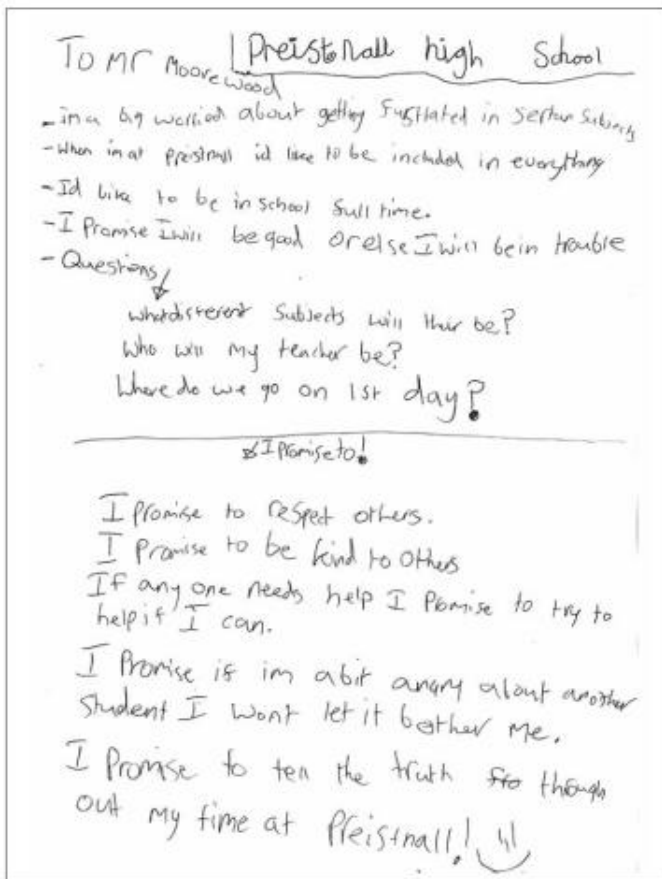 Preistnall high School
To Mr Moorewood
- im a big worried about getting fustrated in sertan Subjects
- When im at preistnall id like to be included in everything
- Id like to be in school full time.
- I Promise I will be good or else I will be in trouble
- Questions
what different Subjects will ther be?
Who will my teacher be?
Where do we go on 1st day?
I Promise to!
I Promise to respect others.
I Promise to be kind to others
If any one needs help I Promise to try to
help if I can.
I Promise if im a bit angry about another
Student I wont let it bother me.
I Promise to tell the truth through
out my time at Preistnall!